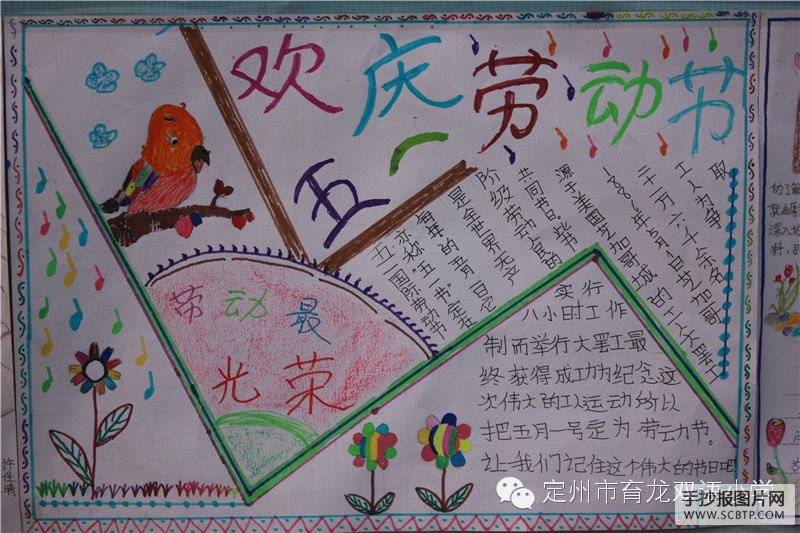 欢庆劳动节
五一
劳动最
光荣
五一国际劳动节
亦称"五一节"定在
每年的五月一日它
是全世界无产
阶级劳动人民的
共同节日。此节
源于美国芝加哥城的工人大罢工
1886年5月1日芝加哥
二十一万六千余名
工人为争
取
实行
八小时工作
制而举行大罢工最
终获得成功为纪念这
次伟大的工人运动所以
把五月一号定为劳动节。
让我们记住这个伟大的节日吧
的了解
深入的
定州市育龙双语小学
手抄报图片网
WWW.SCBTP.COM